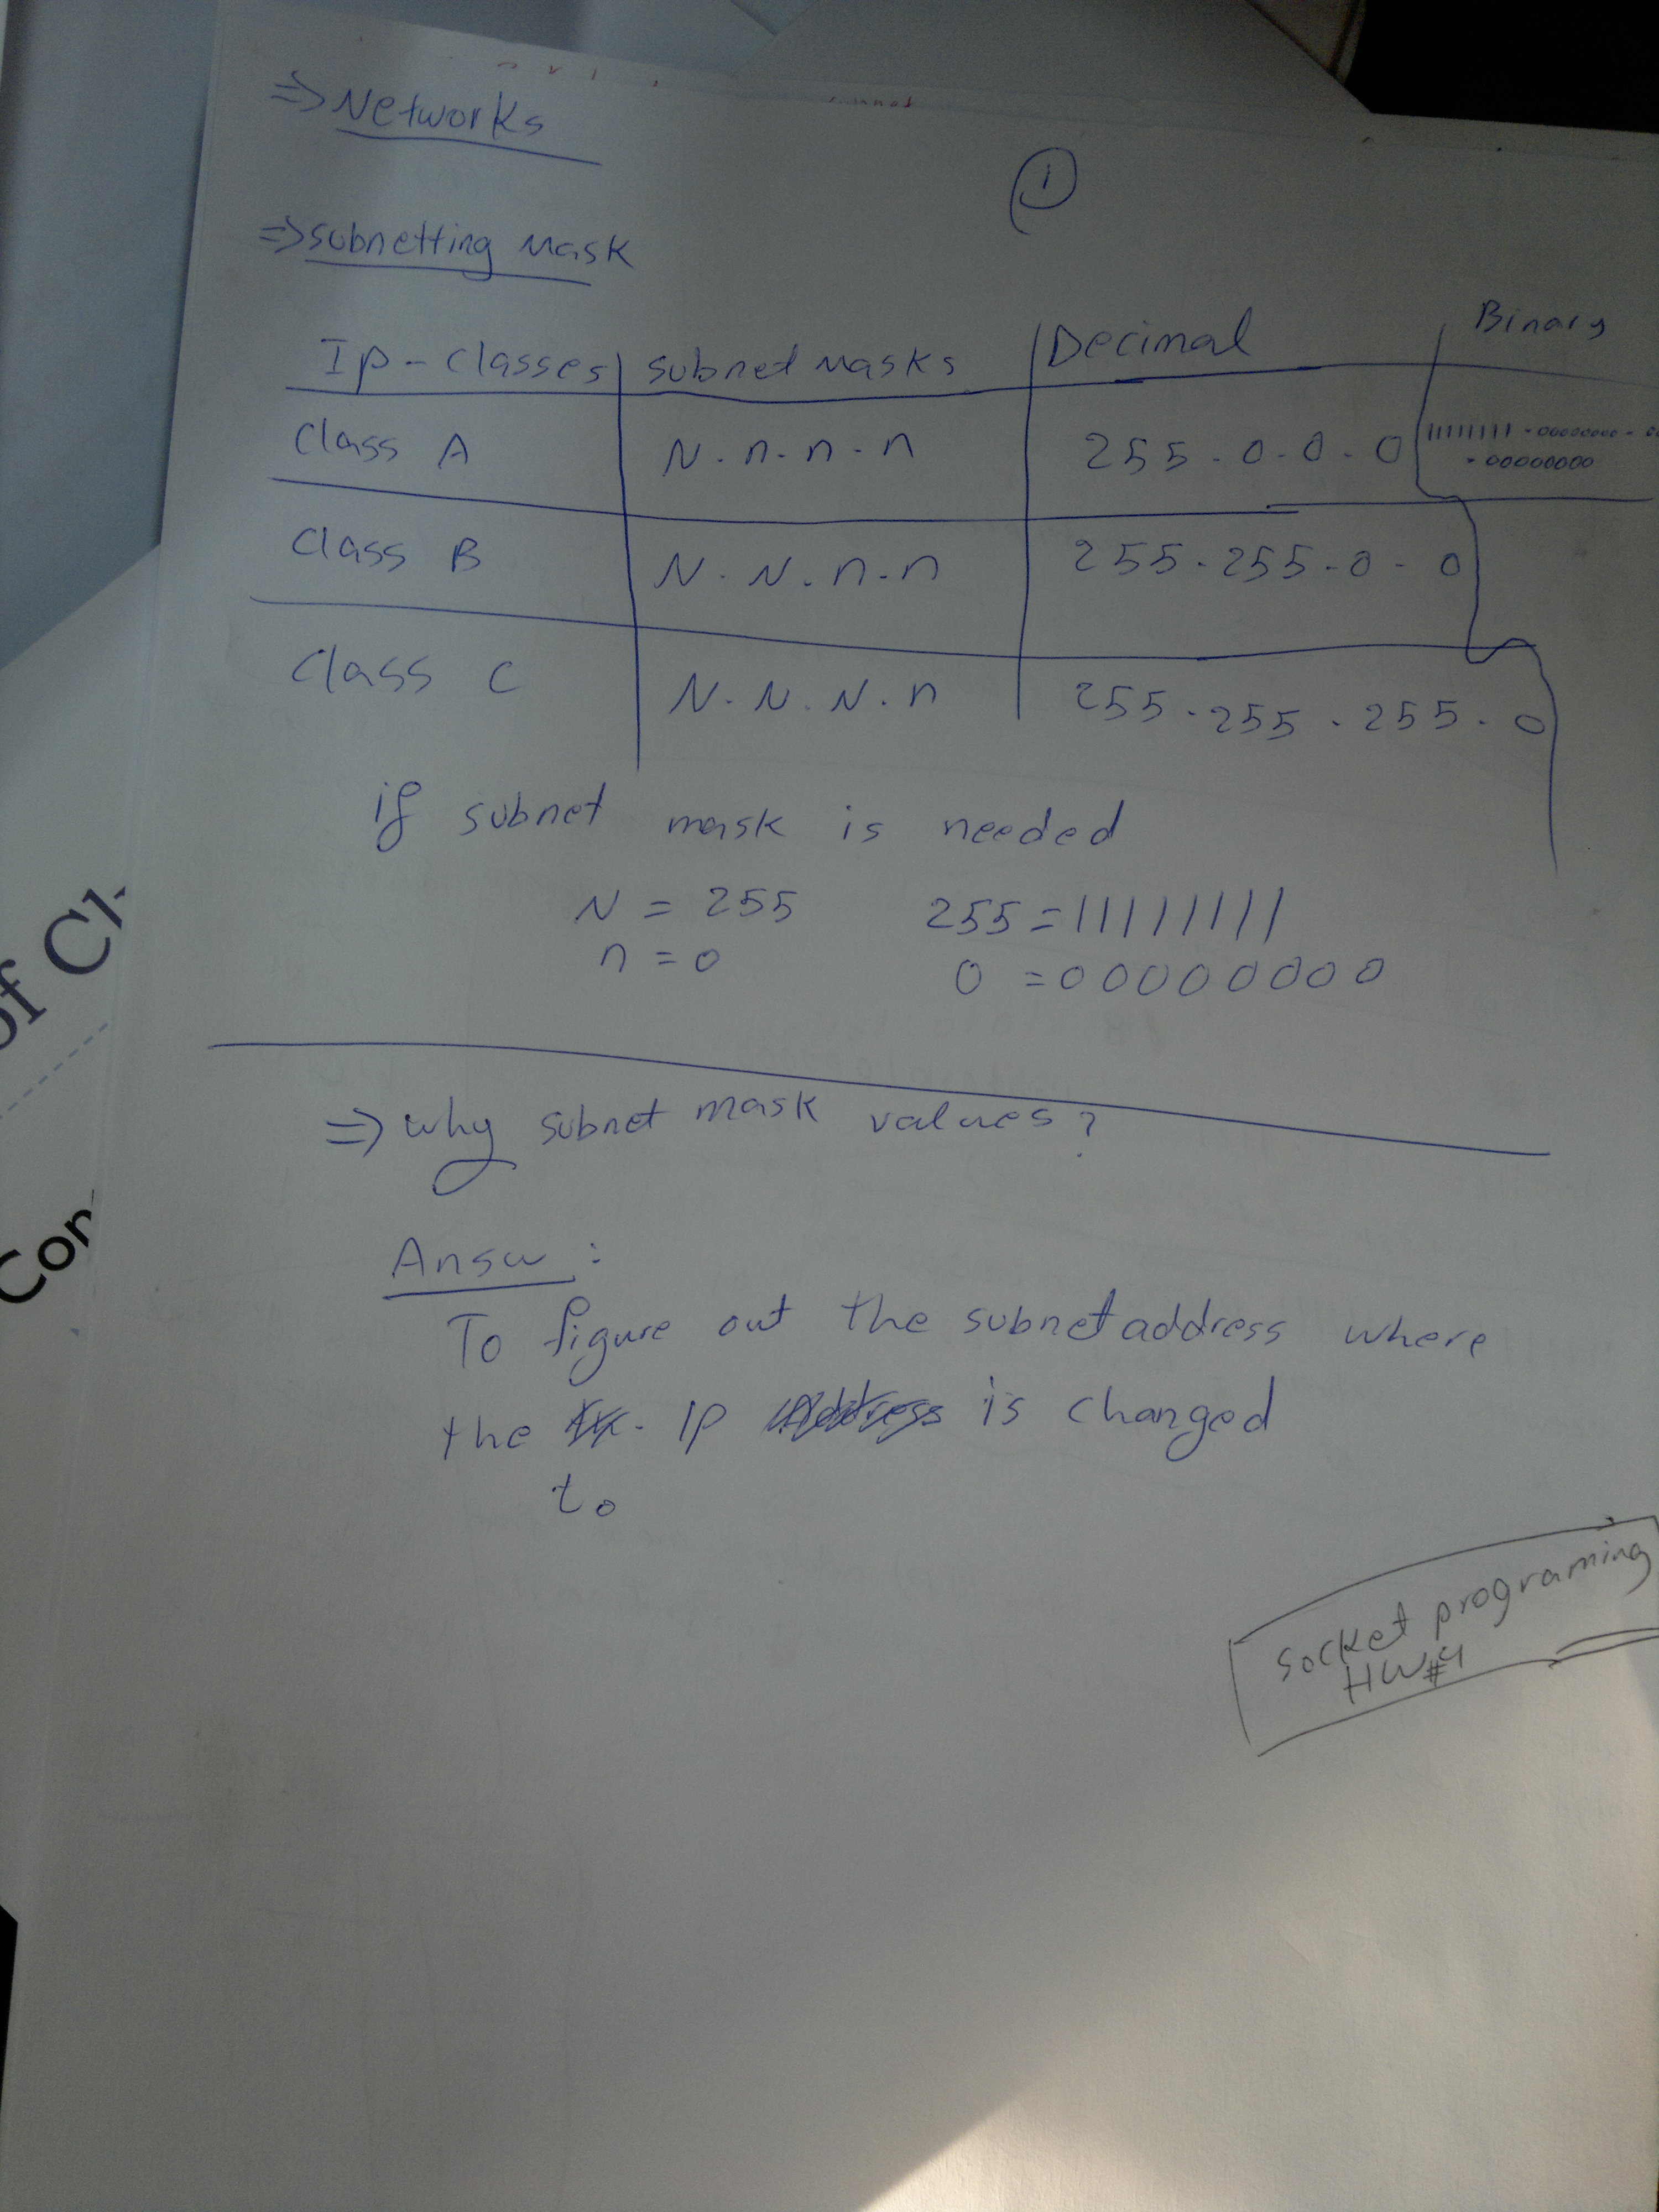 => Networks
1
=> subnetting mask
Ip-classes subnet masks Decimal Binary
Class A N.n.n.n 255.0.0.0 11111111.00000000.
.00000000
Class B N.N.n.n 255.255.0.0
Class C N.N.N.n 255.255.255.0
if subnet mask is needed
N = 255 255 = 11111111
n = 0 0 = 00000000
=> why subnet mask values?
Answ :
To figure out the subnet address where
the Ip Address is changed
to
Socket programing
HW#4
of
Con